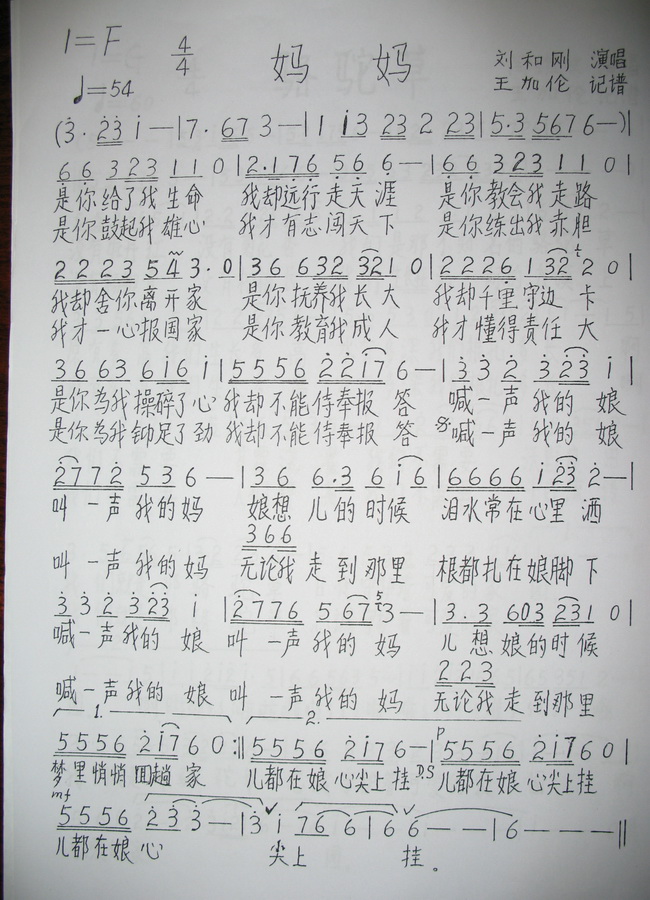 1=F 4/4 妈 妈 刘和刚 演唱
♩=54 王加伦 记谱
(3̇· 2̇3̇ 1̇ — | 7· 67 3 — | 1 1̇3 23 2 23 | 5·3 5676 — )|
66 323 11 0 | 2·176 56 6 — | 66 323 11 0 |
是你给了我生命 我却远行走天涯 是你教会我走路
是你鼓起我雄心 我才有志闯天下 是你练出我赤胆
2223 54 3·0 | 36 632 321 0 | 2226 132 t2 0 |
我却舍你离开家 是你抚养我长大 我却千里守边卡
我才一心报国家 是你教育我成人 我才懂得责任大
3663 61̇6 1̇ | 5556 2̇2̇1̇7 6 — | 3̇3̇2̇ 3̇2̇3̇ 1̇ |
是你为我操碎了心 我却不能侍奉报答 喊一声我的娘
是你为我铆足了劲 我却不能侍奉报答 𝄋喊一声我的娘
2̇772̇ 536 — | 36 6·3 61̇6 | 6666 1̇2̇3̇ 2̇ — |
叫一声我的妈 娘想儿的时候 泪水常在心里洒
366
叫一声我的妈 无论我走到那里 根都扎在娘脚下
3̇3̇2̇ 3̇2̇3̇ 1̇ | 2̇776 567 5t3 — | 3·3 603 231 0 |
喊一声我的娘 叫一声我的妈 儿想娘的时候
223
喊一声我的娘 叫一声我的妈 无论我走到那里
1. 2.
5556 2̇1̇76 0 :‖ 5556 2̇1̇76 — | P 5556 2̇1̇76 0 |
梦里悄悄回趟家 儿都在娘心尖上挂 D.S 儿都在娘心尖上挂
mf
5556 2̇3̇3̇ — | 3̇ ✓ 1̇ 766 | 6 ✓ 6 — — — | 6 — — — ‖
儿都在娘心 尖上 挂。